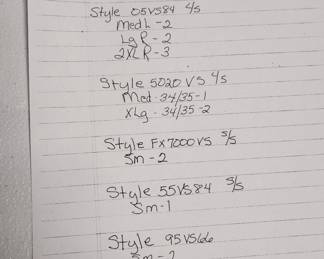 Style 05VS84 4/S
Med L - 2
Lg R - 2
2XL R - 3
Style 5020 VS 4/S
Med - 34/35 - 1
XLg - 34/35 - 2
Style FX7000VS S/S
Sm - 2
Style 55VS84 S/S
Sm - 1
Style 95VS66
Sm - 2